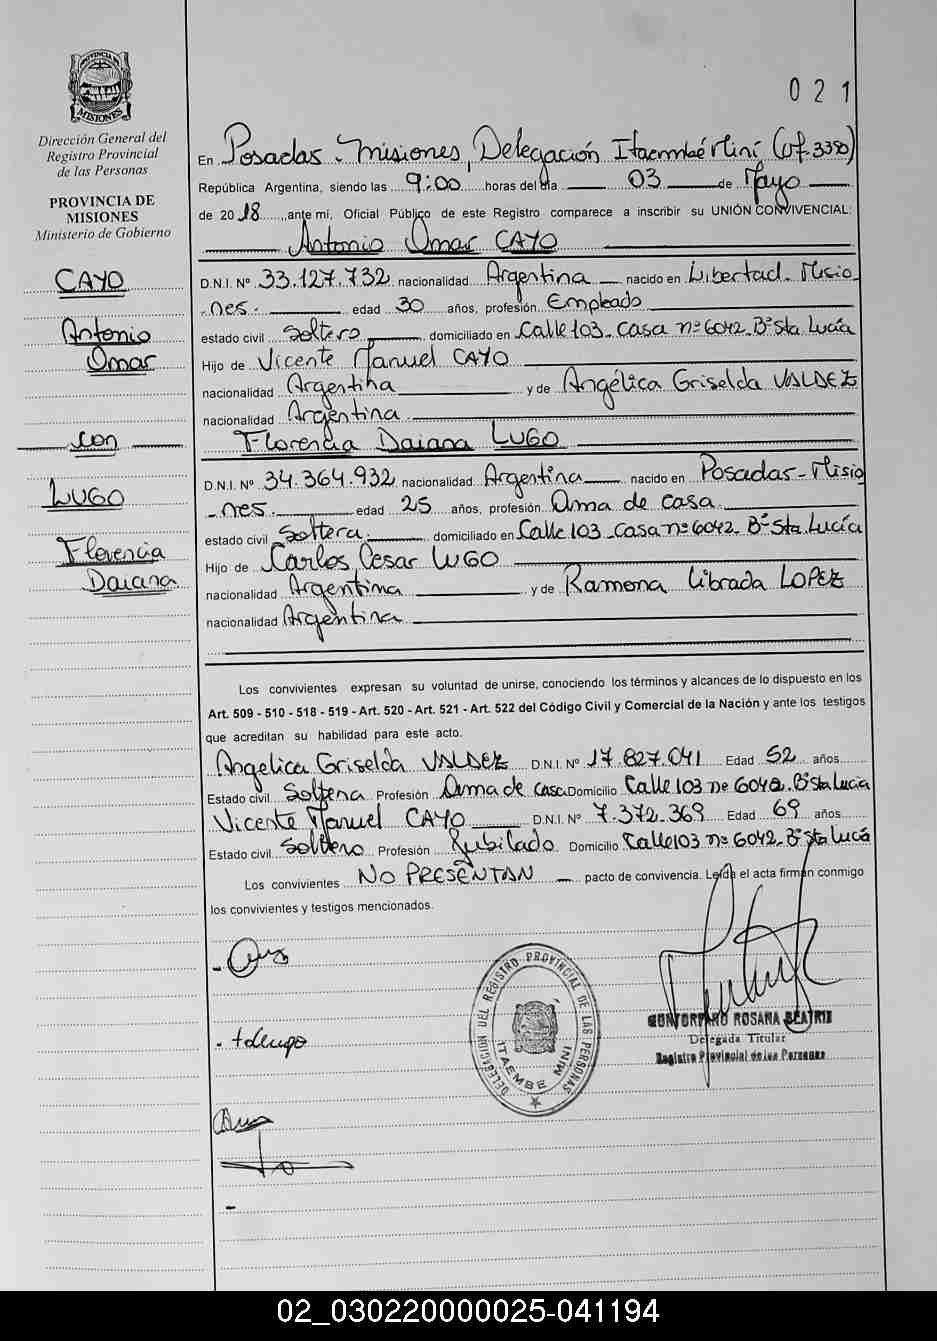 PROVINCIA DE
MISIONES
Dirección General del
Registro Provincial
de las Personas
PROVINCIA DE
MISIONES
Ministerio de Gobierno
CAYO
Antonio
Omar
con
LUGO
Florencia
Daiana
021
En Posadas - Misiones, Delegación Itaembé Mini (of. 3350)
República Argentina, siendo las 9:00 horas del día 03 de Mayo
de 2018, ante mí, Oficial Público de este Registro comparece a inscribir su UNIÓN CONVIVENCIAL:
Antonio Omar CAYO
D.N.I. Nº 33.127.732 nacionalidad Argentina nacido en Libertad - Misio
nes. edad 30 años, profesión Empleado
estado civil Soltero domiciliado en Calle 103 - Casa nº 6042 - Bº Sta. Lucía
Hijo de Vicente Manuel CAYO
nacionalidad Argentina y de Angélica Griselda VALDEZ
nacionalidad Argentina
Florencia Daiana LUGO
D.N.I. Nº 34.364.932 nacionalidad Argentina nacido en Posadas - Misio
nes. edad 25 años, profesión Ama de casa
estado civil Soltera domiciliado en Calle 103 - Casa nº 6042 - Bº Sta. Lucía
Hijo de Carlos Cesar LUGO
nacionalidad Argentina y de Ramona Librada LOPEZ
nacionalidad Argentina
Los convivientes expresan su voluntad de unirse, conociendo los términos y alcances de lo dispuesto en los
Art. 509 - 510 - 518 - 519 - Art. 520 - Art. 521 - Art. 522 del Código Civil y Comercial de la Nación y ante los testigos
que acreditan su habilidad para este acto.
Angelica Griselda VALDEZ D.N.I. Nº 17.827.041 Edad 52 años
Estado civil Soltera Profesión Ama de casa Domicilio Calle 103 nº 6042 - Bº Sta Lucia
Vicente Manuel CAYO D.N.I. Nº 7.372.369 Edad 69 años
Estado civil Soltero Profesión Jubilado Domicilio Calle 103 nº 6042 - Bº Sta Lucá
Los convivientes NO PRESENTAN pacto de convivencia. Leída el acta firman conmigo
los convivientes y testigos mencionados.
DELEGACION DEL REGISTRO PROVINCIAL DE LAS PERSONAS
ITAEMBE MINI
ROSANA BEATRIZ
Delegada Titular
Registro Provincial de las Personas
02_030220000025-041194